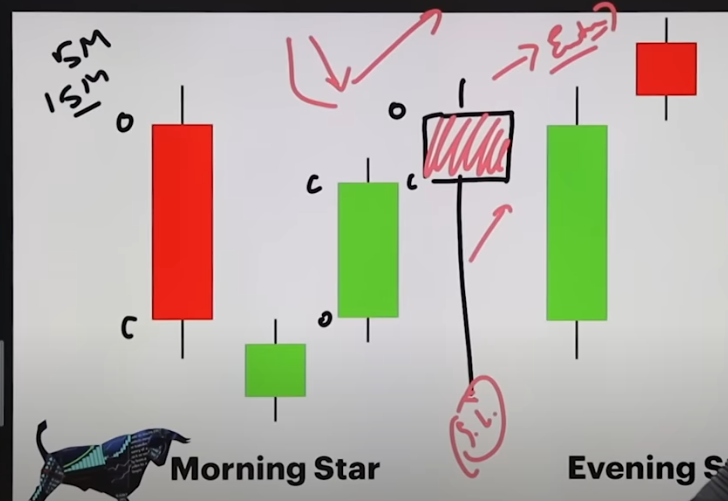 5M
15M
O
C
C
O
O
C
Entry
S.L.
Morning Star
Evening S